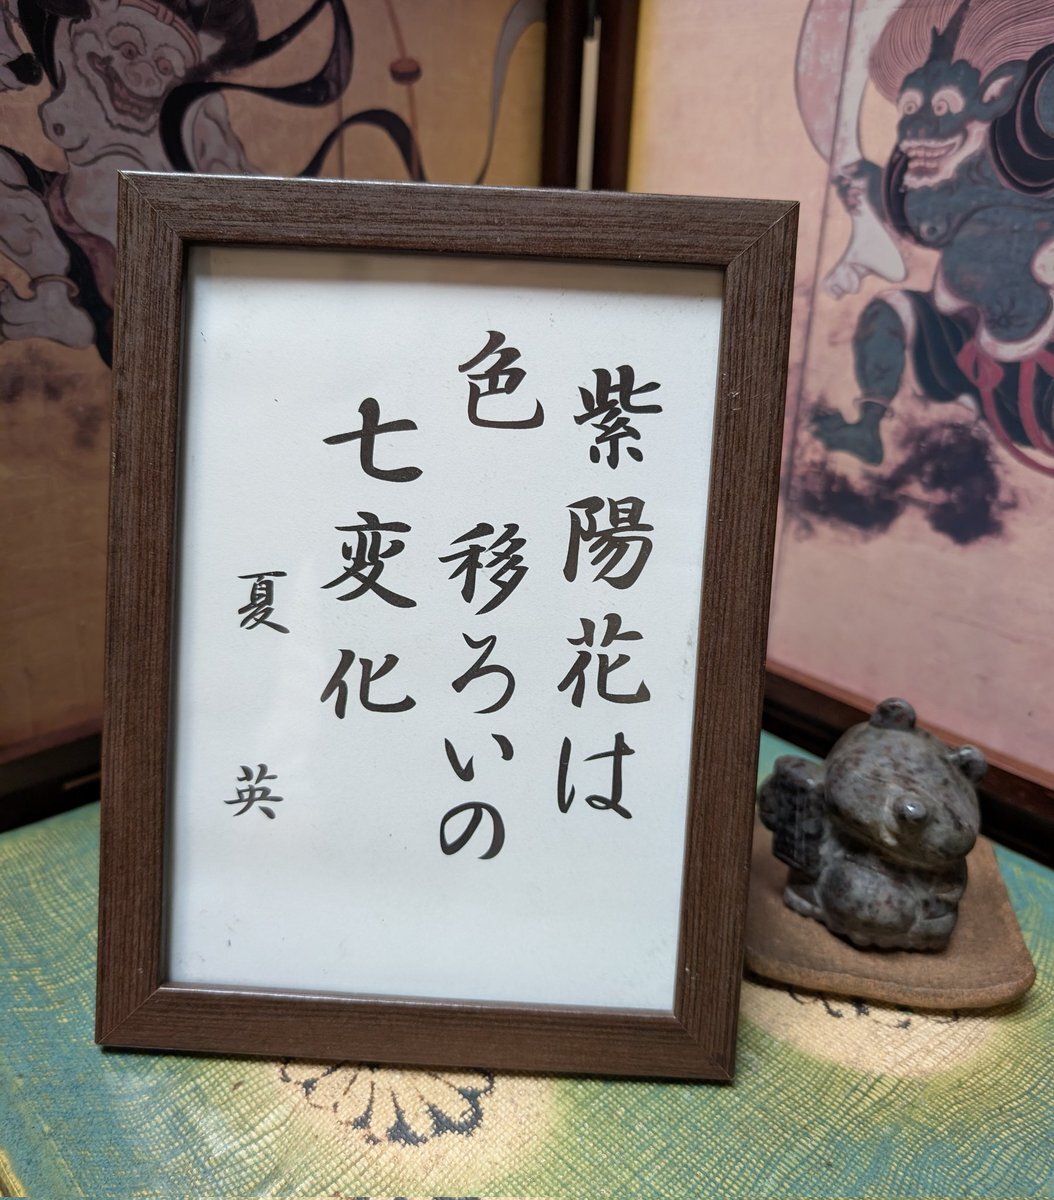 紫陽花は
色移ろいの
七変化
夏英